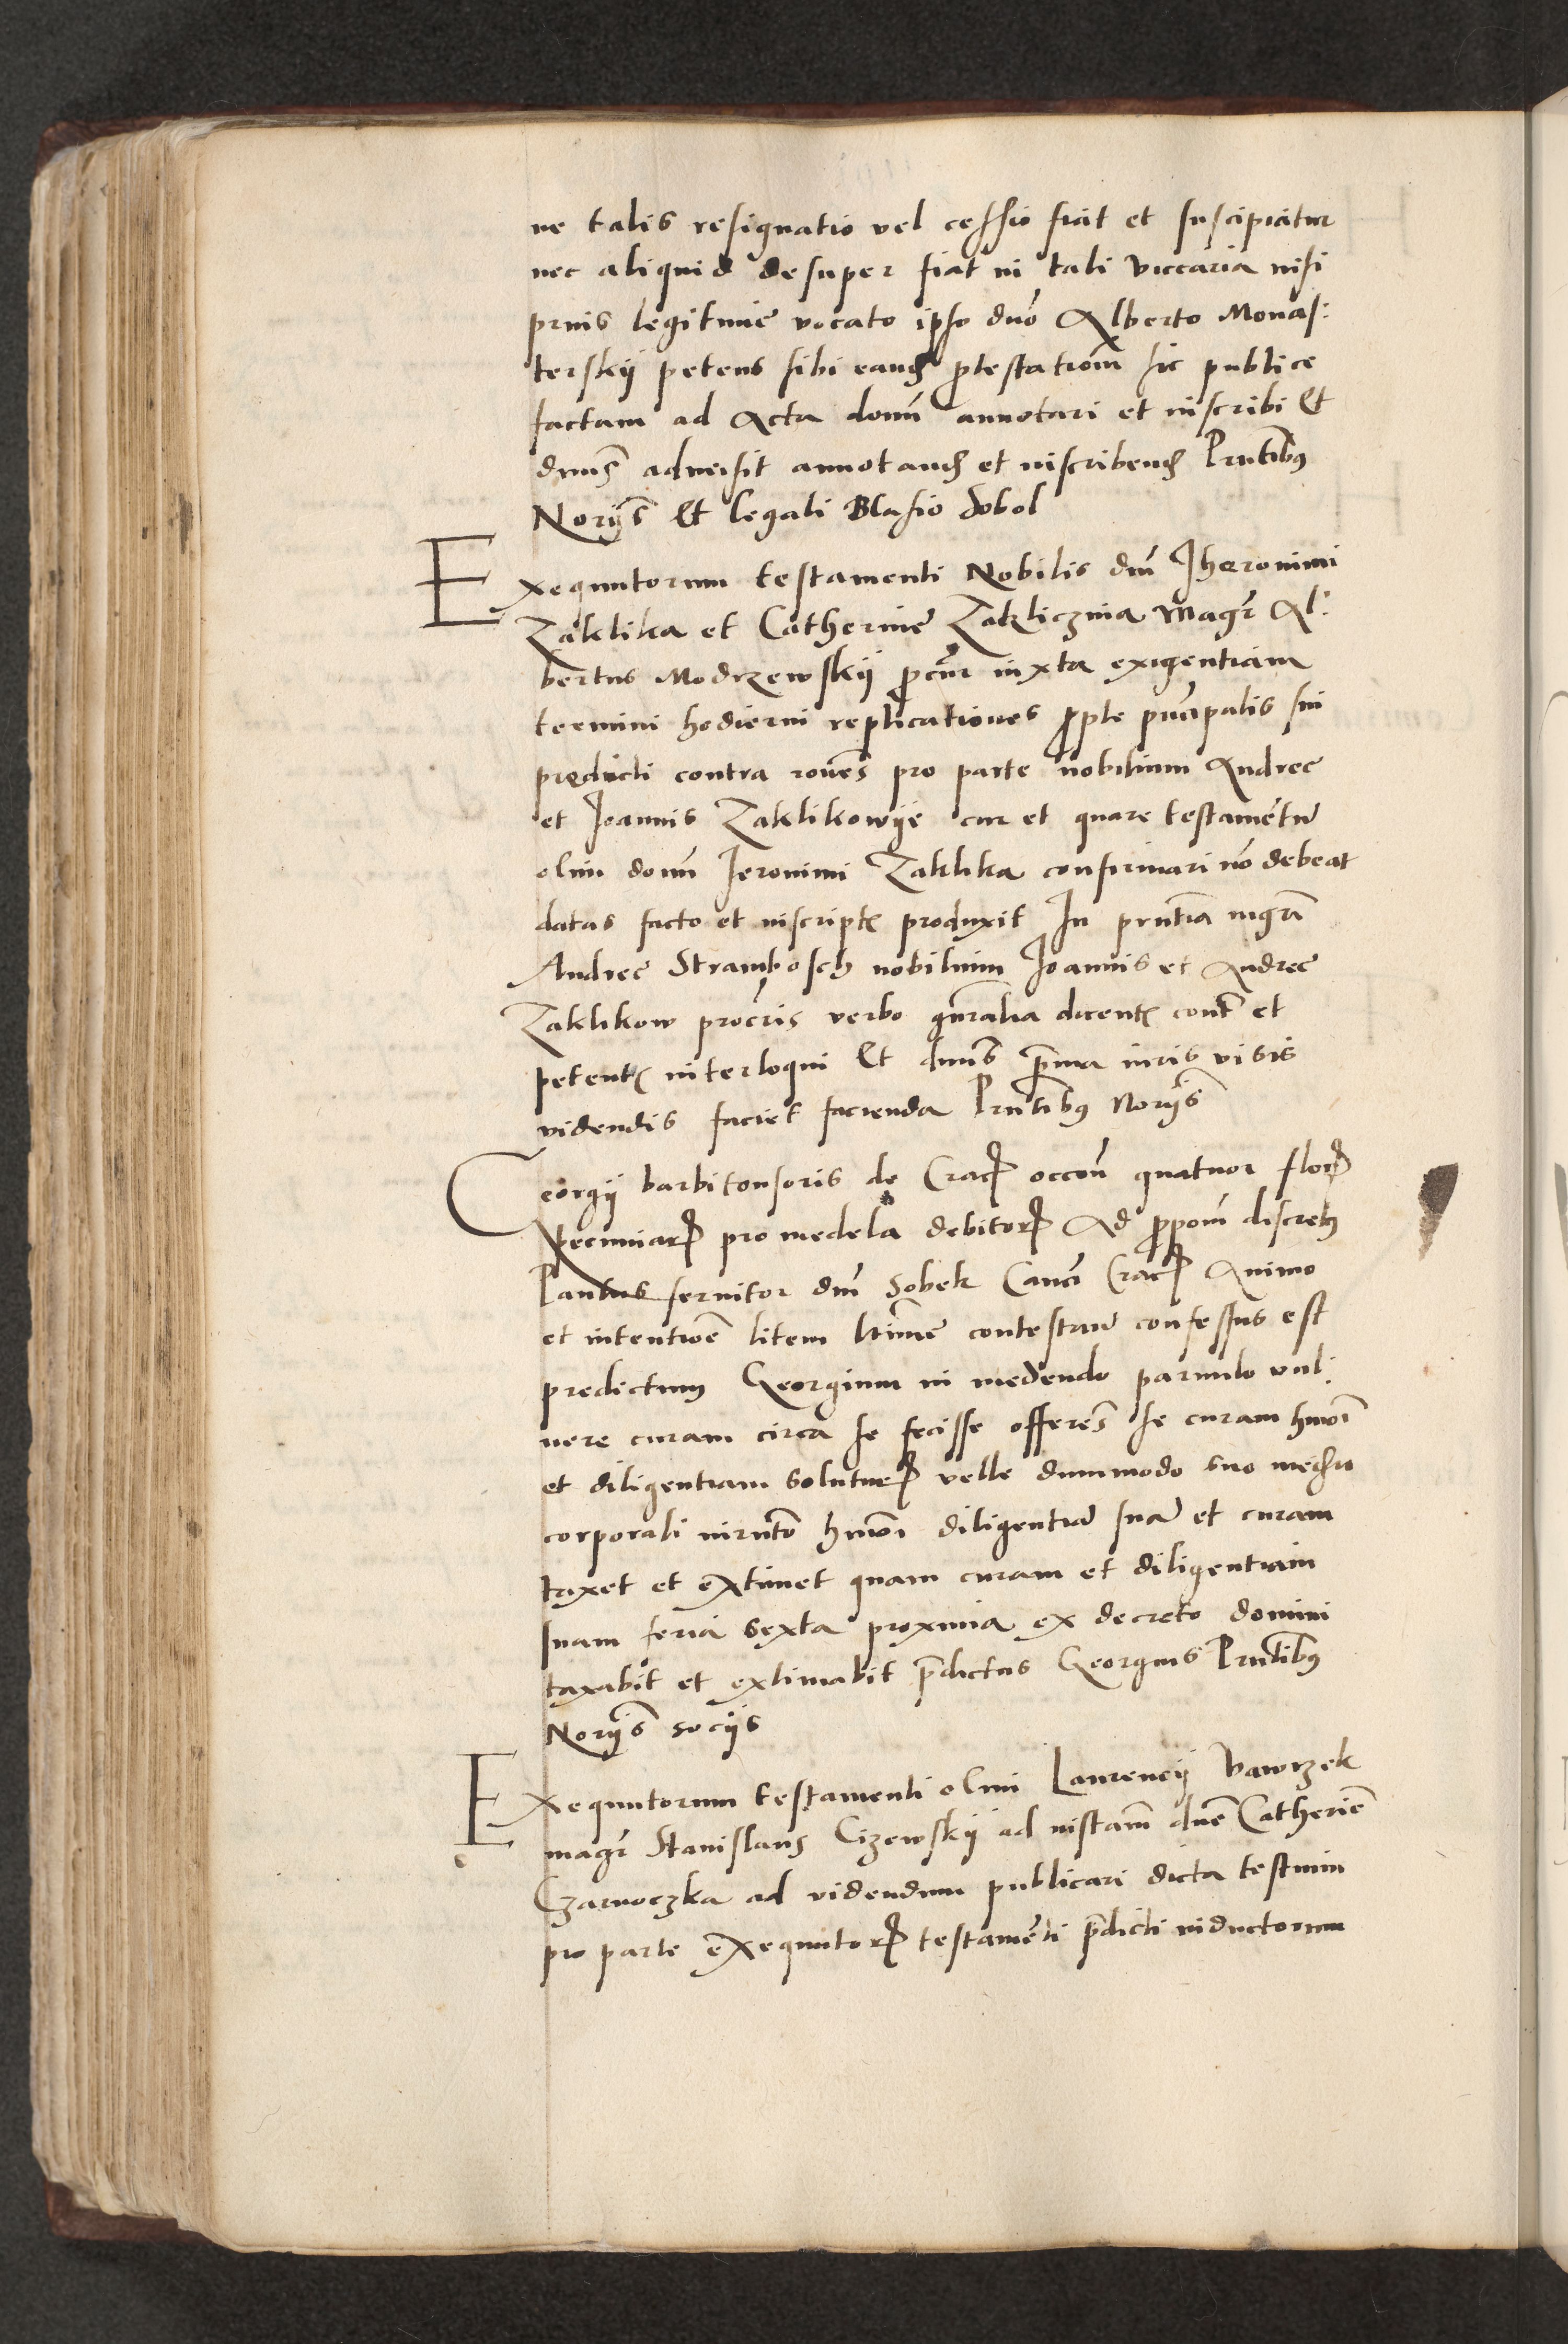 ne talis resignatio vel cessio fiat et suscipiatur
nec aliquid desuper fiat in tali viccaria nisi
prius legitime vocato ipso dno Alberto Monas:
terskij petens sibi eand ptestationem sic publice
factam ad Acta domi annotari et inscribi Et
dnus admisit annotand et inscribend Pntibus
Norijs Et legali Blasio Sobol
Exequutorum testamenti Nobilis dni Jheronimi
Zaklika et Catherine Zakliczina Magr Al:
bertus Modrzewskij pcur iuxta exigentiam
termini hodierni replicationes pple pncipalis sui
predicti contra rones pro parte nobilium Andree
et Joannis Zaklikowije cur et quare testamentu
olim domi Jeronimi Zaklika confirmari no debeat
datas facto et inscript produxit In pntia mgri
Andree Strambosch nobilium Joannis et Andree
Zaklikow procris verbo gnralia dicent cont et
petent interloqui Et dnus pma iuris visis
videndis faciet facienda Pntibus Norijs
Georgij barbitonsoris de Crac occon quatuor flor
pecuniar pro medela debitor Ad ppom discretus
Pantus servitor dni Sobek Canci Crac Animo
et intentione litem ltime contestan confessus est
predictum Georgium in medendo parvulo vul:
nere curam circa se fecisse offerens se curam hmoi
et diligentiam soluturu velle dummodo suo medio
corporali iurnto hmoi diligentia sua et curam
taxet et extimet quam curam et diligentiam
suam feria sexta proxima ex decreto domini
taxabit et extimabit pdictus Georgius Pntibus
Norijs socijs
Exequutorum testamenti olim Laurencij Vawrzek
magr Stanislaus Cizewskij ad instam dne Catherine
Czarnoczka ad videndum publicari dicta testium
pro parte exequutor testamenti pdicti inductorum